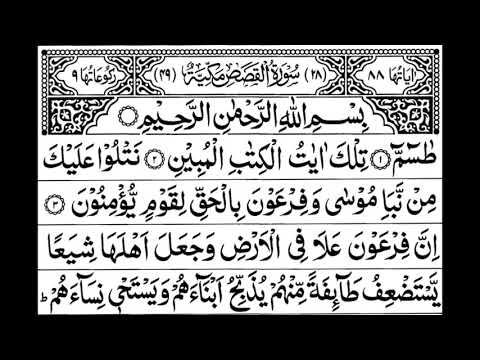 اٰيَاتُهَا ٨٨ (٢٨) سُوْرَةُ الْقَصَصِ مَكِّيَّةٌ (٤٩) رُكُوْعَاتُهَا ٩
بِسْمِ اللّٰهِ الرَّحْمٰنِ الرَّحِيْمِ
طٰسٓمّٓ ۝١ تِلْكَ اٰيٰتُ الْكِتٰبِ الْمُبِيْنِ ۝٢ نَتْلُوْا عَلَيْكَ
مِنْ نَّبَاِ مُوْسٰى وَفِرْعَوْنَ بِالْحَقِّ لِقَوْمٍ يُّؤْمِنُوْنَ ۝٣
اِنَّ فِرْعَوْنَ عَلَا فِى الْاَرْضِ وَجَعَلَ اَهْلَهَا شِيَعًا
يَّسْتَضْعِفُ طَآئِفَةً مِّنْهُمْ يُذَبِّحُ اَبْنَآءَهُمْ وَيَسْتَحْىٖ نِسَآءَهُمْ ؕ